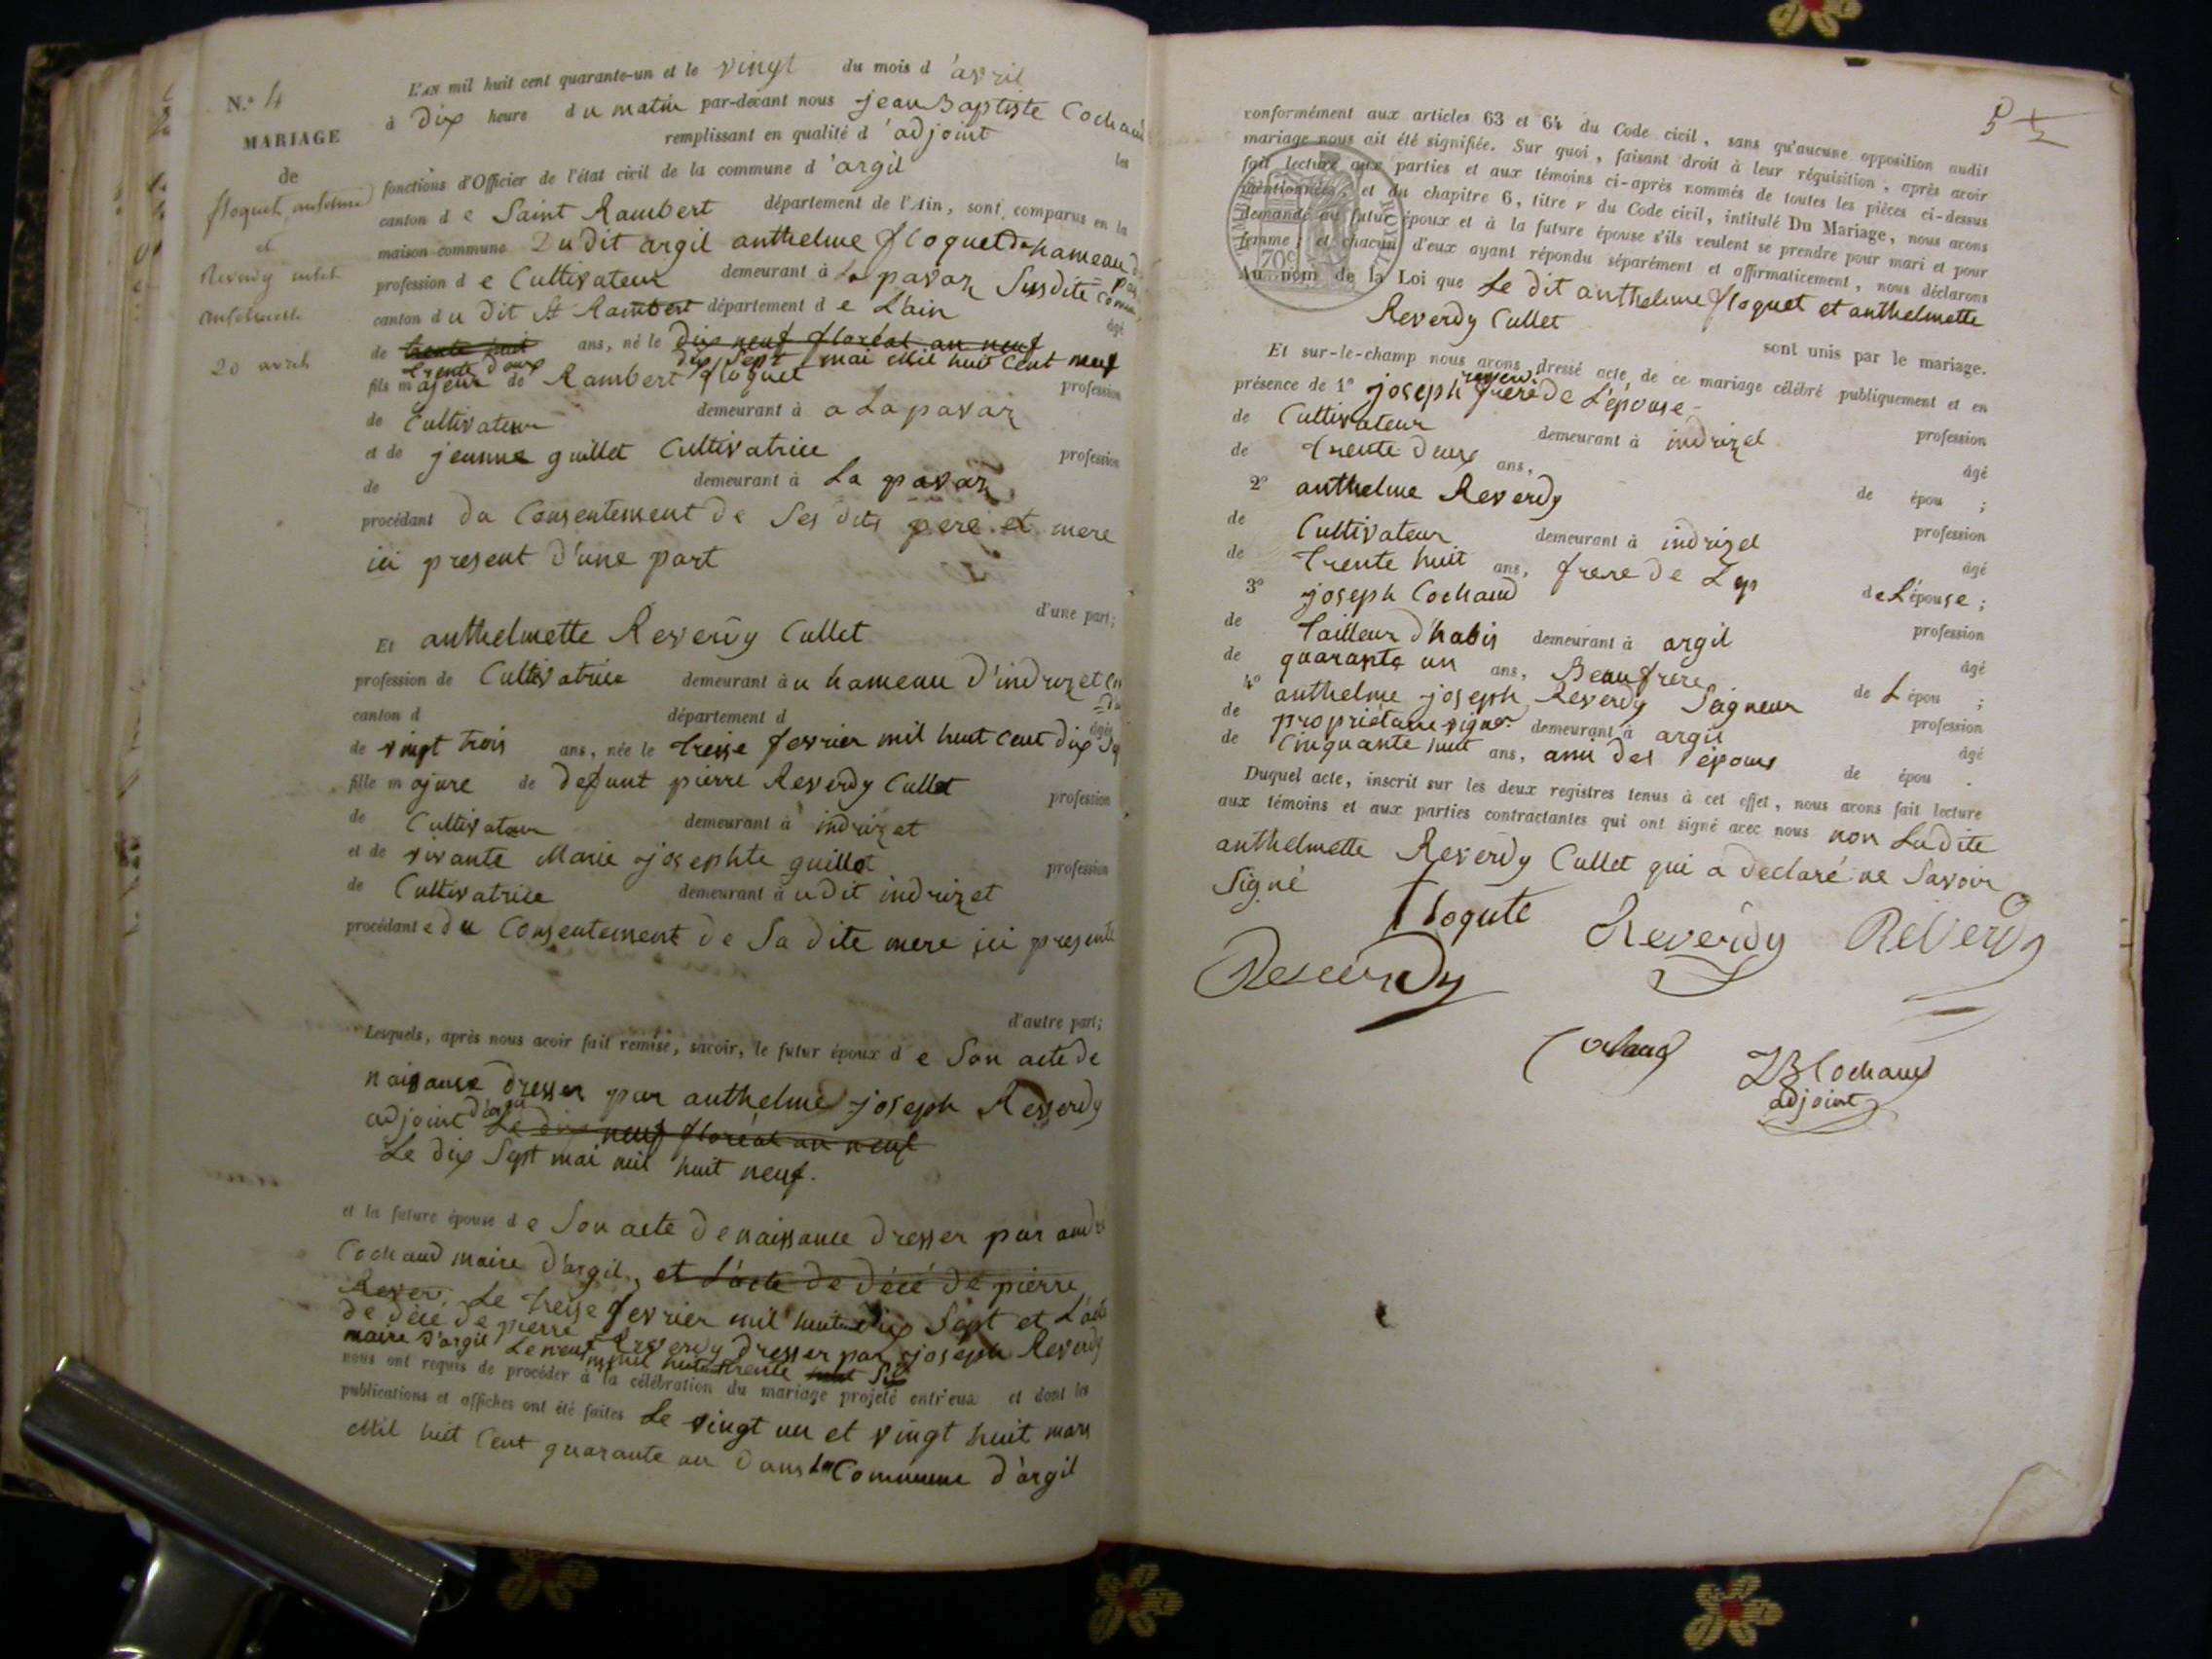 N.° 4
MARIAGE
de
floquet anthelme
et
Reverdy cullet
anthelmette
20 avril
L'AN mil huit cent quarante-un et le vingt du mois d'avril
à dix heure du matin par-devant nous jean Baptiste Cochaud
remplissant en qualité d'adjoint les
fonctions d'Officier de l'état civil de la commune d'argil
canton de Saint Rambert département de l'Ain, sont comparus en la
maison commune Dudit argil anthelme floquet du hameau de
profession de Cultivateur demeurant à La pavaz Susdite Commune
canton du Dit St Rambert département de L'ain
âgé
de trente huit ans, né le dix neuf floréal an neuf
trente deux dix sept mai Mil huit Cent neuf
fils majeur de Rambert floquet profession
de Cultivateur demeurant à a La pavaz
et de jeanne guillet Cultivatrice profession
de demeurant à La pavaz,
procédant du Consentement de Ses dits pere et mere
ici present d'une part
d'une part;
Et anthelmette Reverdy Cullet
profession de Cultivatrice demeurant à u hameau D'indrizet
canton d département d âgée
de vingt trois ans, née le treise fevrier mil huit Cent dix Sept
fille majure de defunt pierre Reverdy Cullet profession
de Cultivateur demeurant à indrizet
et de vivante Marie josephte guillot profession
de Cultivatrice demeurant à udit indrizet
procédante du Consentement de Sa dite mere ici presente
d'autre part;
Lesquels, après nous avoir fait remise, savoir, le futur époux de Son acte de
naisance dresser par anthelme joseph Reserdy
adjoint d'argil Le dix neuf floréal an neuf
Le dix Sept mai mil huit neuf.
et la future épouse de Son acte de naissance dresser par andré
Cochaud maire d'argil, et L'acte de décé de pierre
Rever. Le treise fevrier mil huit dix Sept et L'acte
de décé de pierre Reverdy dresser par joseph Reverdy
maire d'argil Le neuf mil huit trente huit Six
nous ont requis de procéder à la célébration du mariage projeté entr'eux et dont les
publications et affiches ont été faites Le vingt un et vingt huit mars
Mil huit Cent quarante un Dans La Commune d'argil
conformément aux articles 63 et 64 du Code civil, sans qu'aucune opposition audit
mariage nous ait été signifiée. Sur quoi, faisant droit à leur réquisition, après avoir
fait lecture aux parties et aux témoins ci-après nommés de toutes les pièces ci-dessus
mentionnées, et du chapitre 6, titre V du Code civil, intitulé Du Mariage, nous avons
demandé au futur époux et à la future épouse s'ils veulent se prendre pour mari et pour
femme; et chacun d'eux ayant répondu séparément et affirmativement, nous déclarons
TIMBRE ROYAL
70c
Au nom de la Loi que Le dit anthelme floquet et anthelmette
Reverdy Cullet
sont unis par le mariage.
Et sur-le-champ nous avons dressé acte de ce mariage célébré publiquement et en
présence de 1° joseph frere de L'épouse
de Cultivateur demeurant à indrizel profession
de trente deux ans, âgé
2° anthelme Reverdy de épou ;
de Cultivateur demeurant à indrizel profession
de trente huit ans, frere de L'ep âgé
3° joseph Cochaud de L'épouse;
de tailleur d'habis demeurant à argil profession
de quarante un ans, Beaufrere âgé
4° anthelme joseph Reverdy Seigneur de L épou ;
de propriétaire demeurant à argil profession
de Cinquante huit ans, ami des epoux âgé
de épou .
Duquel acte, inscrit sur les deux registres tenus à cet effet, nous avons fait lecture
aux témoins et aux parties contractantes qui ont signé avec nous non Ladite
anthelmette Reverdy Cullet qui a declaré ne Savoir
Signé
floqute
Reverdy
Reverdy
Reverdy
Cochaud
JB Cochaud
adjoint